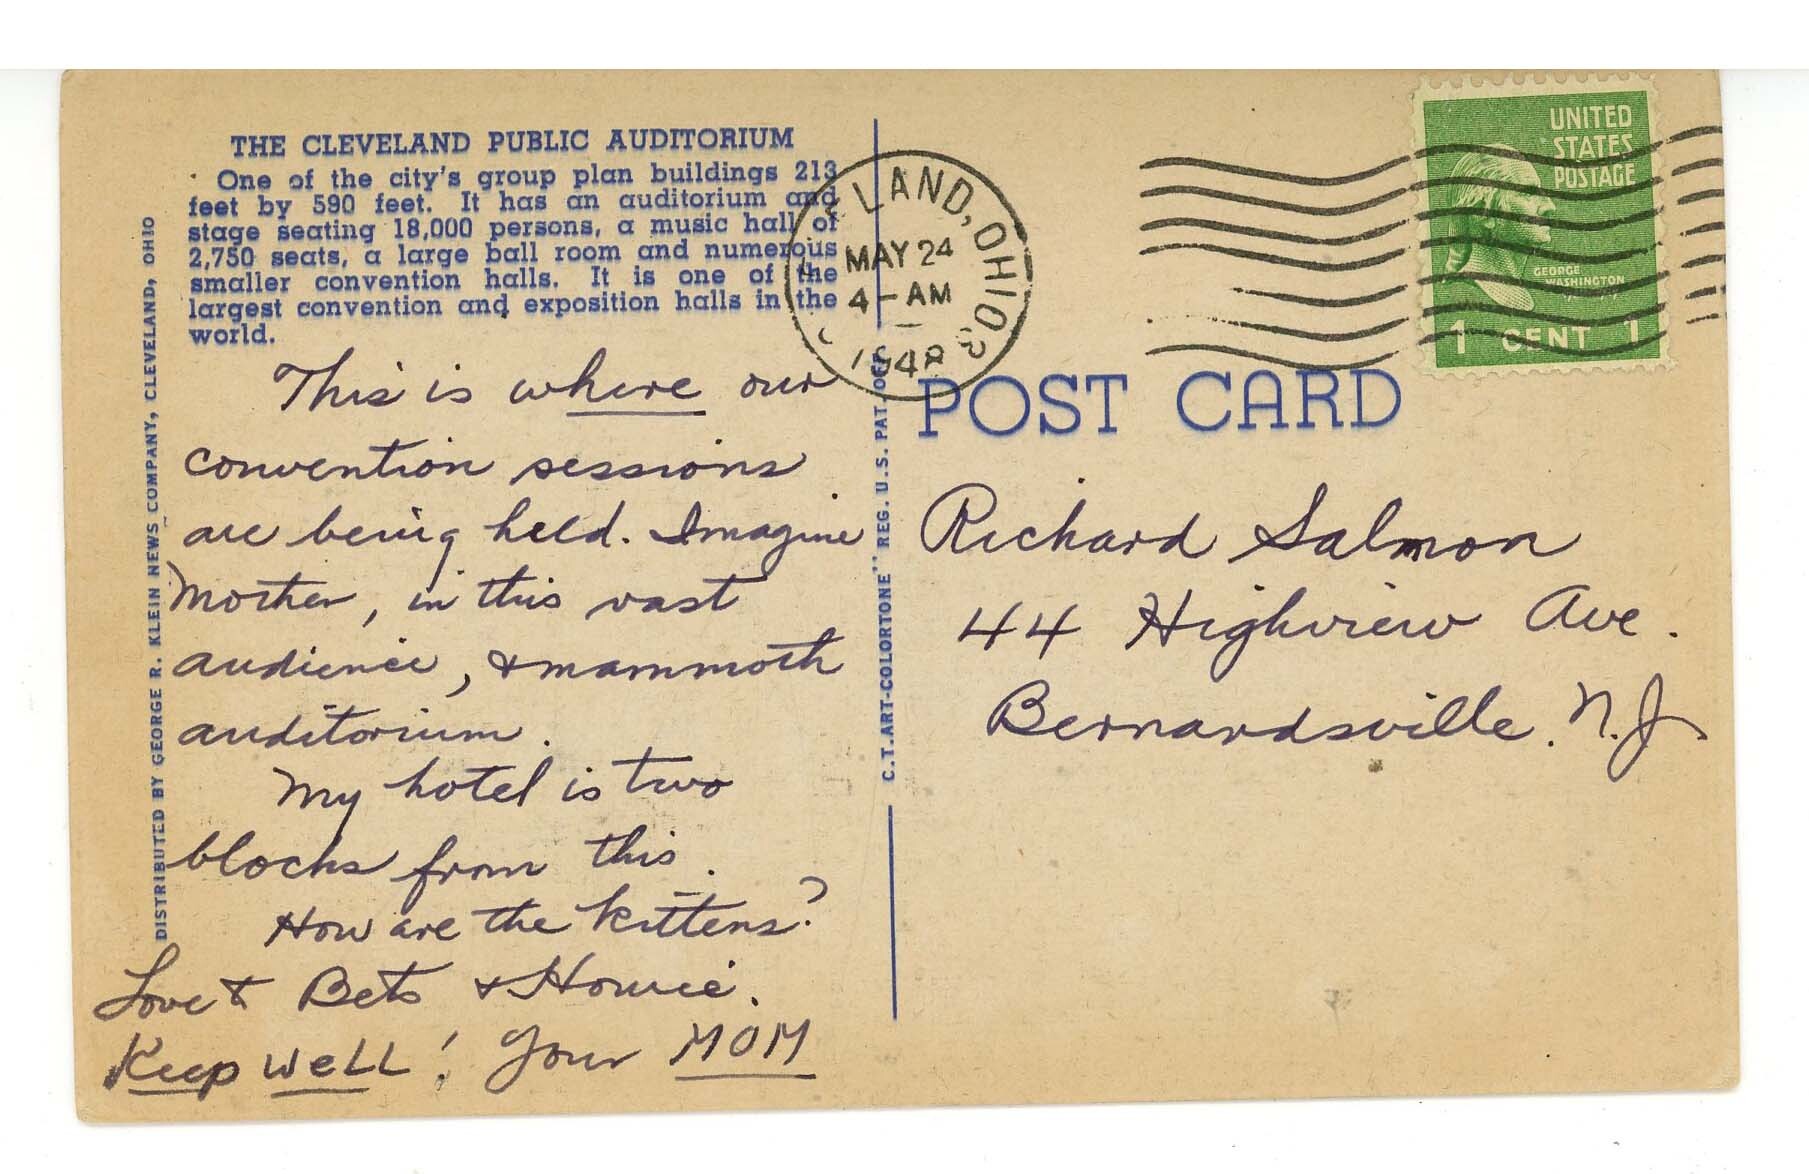 THE CLEVELAND PUBLIC AUDITORIUM
One of the city's group plan buildings 213
feet by 590 feet. It has an auditorium and
stage seating 18,000 persons, a music hall of
2,750 seats, a large ball room and numerous
smaller convention halls. It is one of the
largest convention and exposition halls in the
world.
This is where our
convention sessions
are being held. Imagine
Mother, in this vast
audience, & mammoth
auditorium.
My hotel is two
blocks from this.
How are the kittens?
Love to Bets & Howie.
Keep well! Your MOM
DISTRIBUTED BY GEORGE R. KLEIN NEWS COMPANY, CLEVELAND, OHIO
C.T. ART-COLORTONE" REG. U.S. PAT. OFF.
LAND, OHIO
MAY 24
4-AM
1948
UNITED
STATES
POSTAGE
GEORGE
WASHINGTON
1 CENT 1
POST CARD
Richard Salmon
44 Highview Ave.
Bernardsville. N.J.